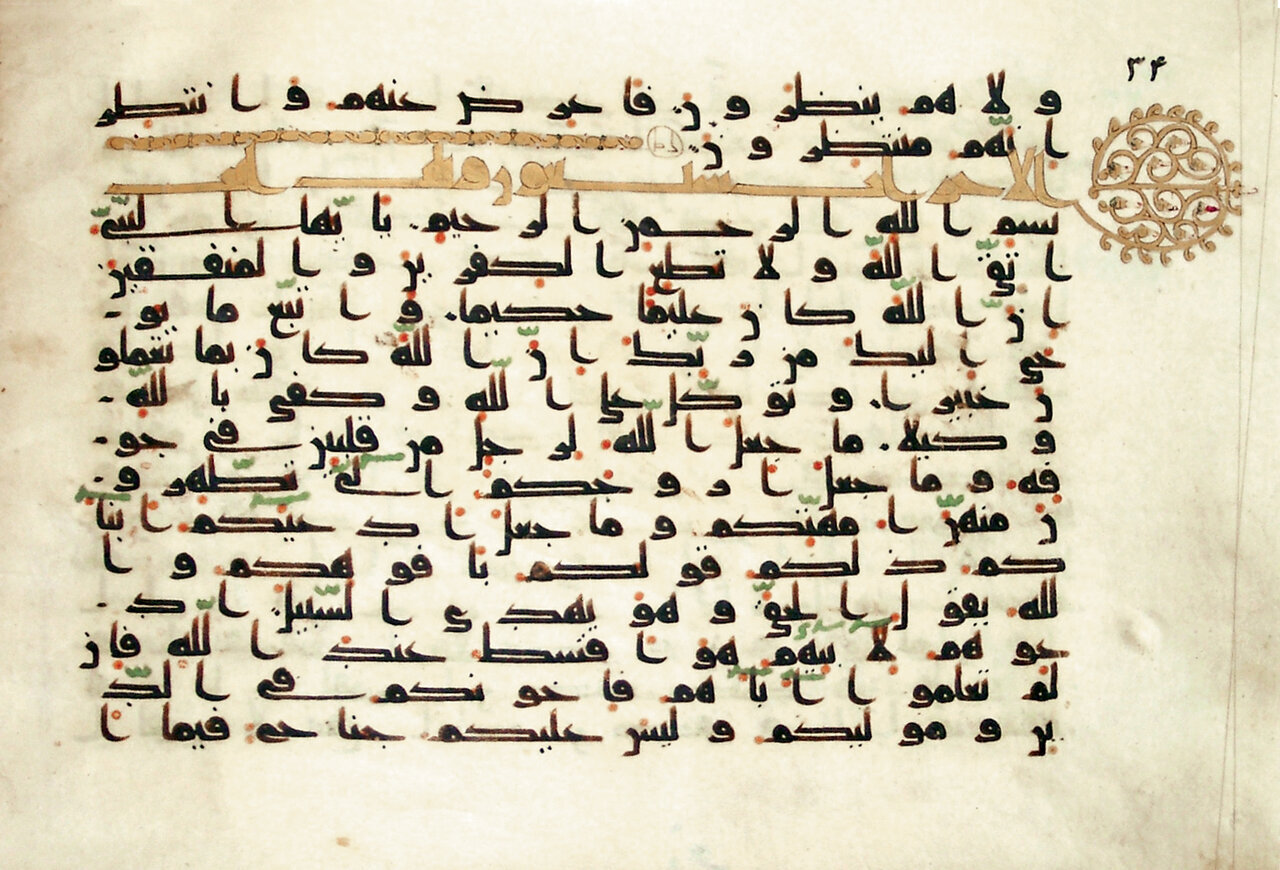 ۳۴
ولا هم ينظرون فاعرض عنهم وانتظر
انهم منتظرون
الاحزاب سبعون وثلث ايت
بسم الله الرحمن الرحيم يايها النبي
اتق الله ولا تطع الكفرين والمنفقين
ان الله كان عليما حكيما واتبع ما يو
حى اليك من ربك ان الله كان بما تعملو
ن خبيرا وتوكل على الله وكفى بالله
وكيلا ما جعل الله لرجل من قلبين في جو
فه وما جعل ازوجكم الى تظهرو
ن منهن امهتكم وما جعل ادعيكم ابنا
كم ذلكم قولكم بافوهكم وا
لله يقول الحق وهو يهدى السبيل اد
عوهم لابيهم هو اقسط عند الله فان
لم تعلموا اباهم فاخونكم في الد
ين وموليكم وليس عليكم جناح فيما ا